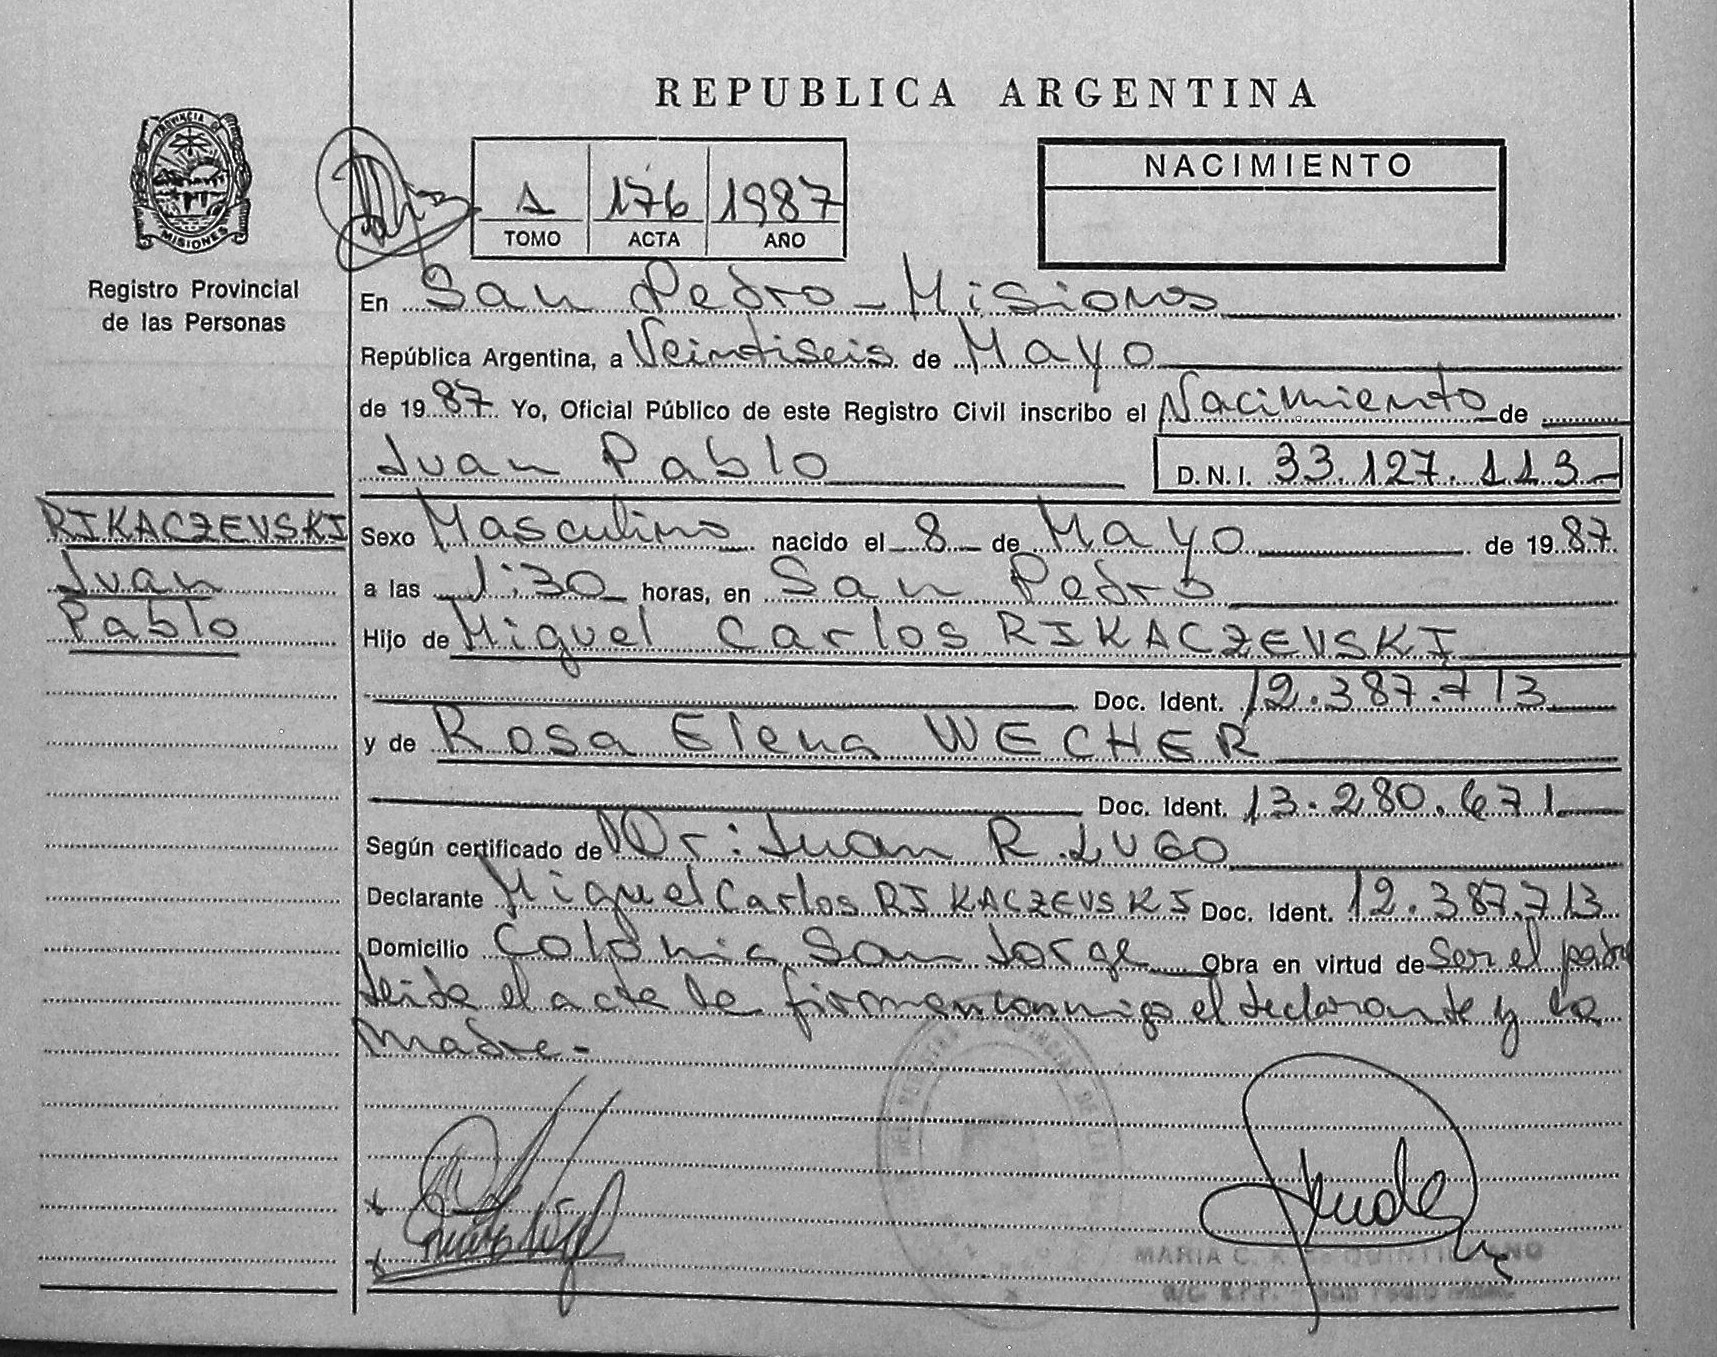 REPUBLICA ARGENTINA
PROVINCIA DE
MISIONES
Registro Provincial
de las Personas
1 176 1987
TOMO ACTA AÑO
NACIMIENTO
En San Pedro - Misiones
República Argentina, a Veintiseis de Mayo
de 1987 Yo, Oficial Público de este Registro Civil inscribo el Nacimiento de
Juan Pablo D.N.I. 33.127.113-
RIKACZEVSKI
Juan
Pablo
Sexo Masculino nacido el 8 de Mayo de 1987
a las 1:30 horas, en San Pedro
Hijo de Miguel Carlos RIKACZEVSKI
Doc. Ident. 12.387.713
y de Rosa Elena WECHER
Doc. Ident. 13.280.671
Según certificado de Dr: Juan R. LUGO
Declarante Miguel Carlos RIKACZEVSKI Doc. Ident. 12.387.713
Domicilio Colonia San Jorge Obra en virtud de ser el padre
leida el acta la firman conmigo el declarante y la
madre.-
MARIA C.